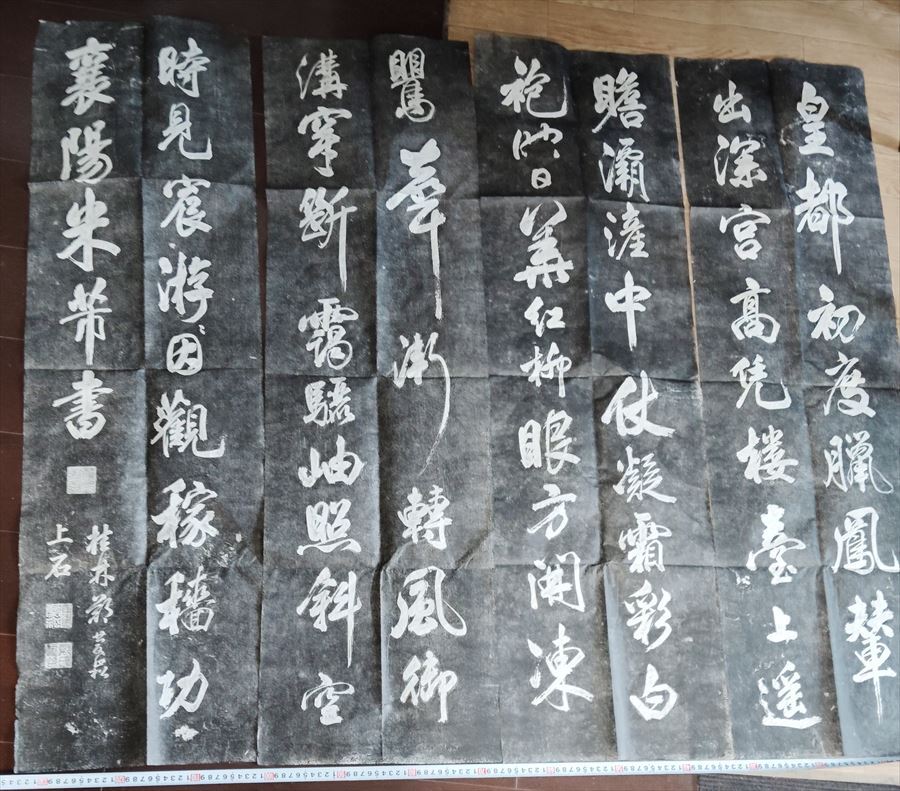 皇都初度臘鳳輦
出深宮高凭楼臺上遥
瞻灞滻中仗凝霜彩白
袍映日華紅柳眼方開凍
鸎華漸轉風御
溝穿斷靄驪岫照斜空
時見宸游因觀稼穡功
襄陽米芾書
桂林
上石